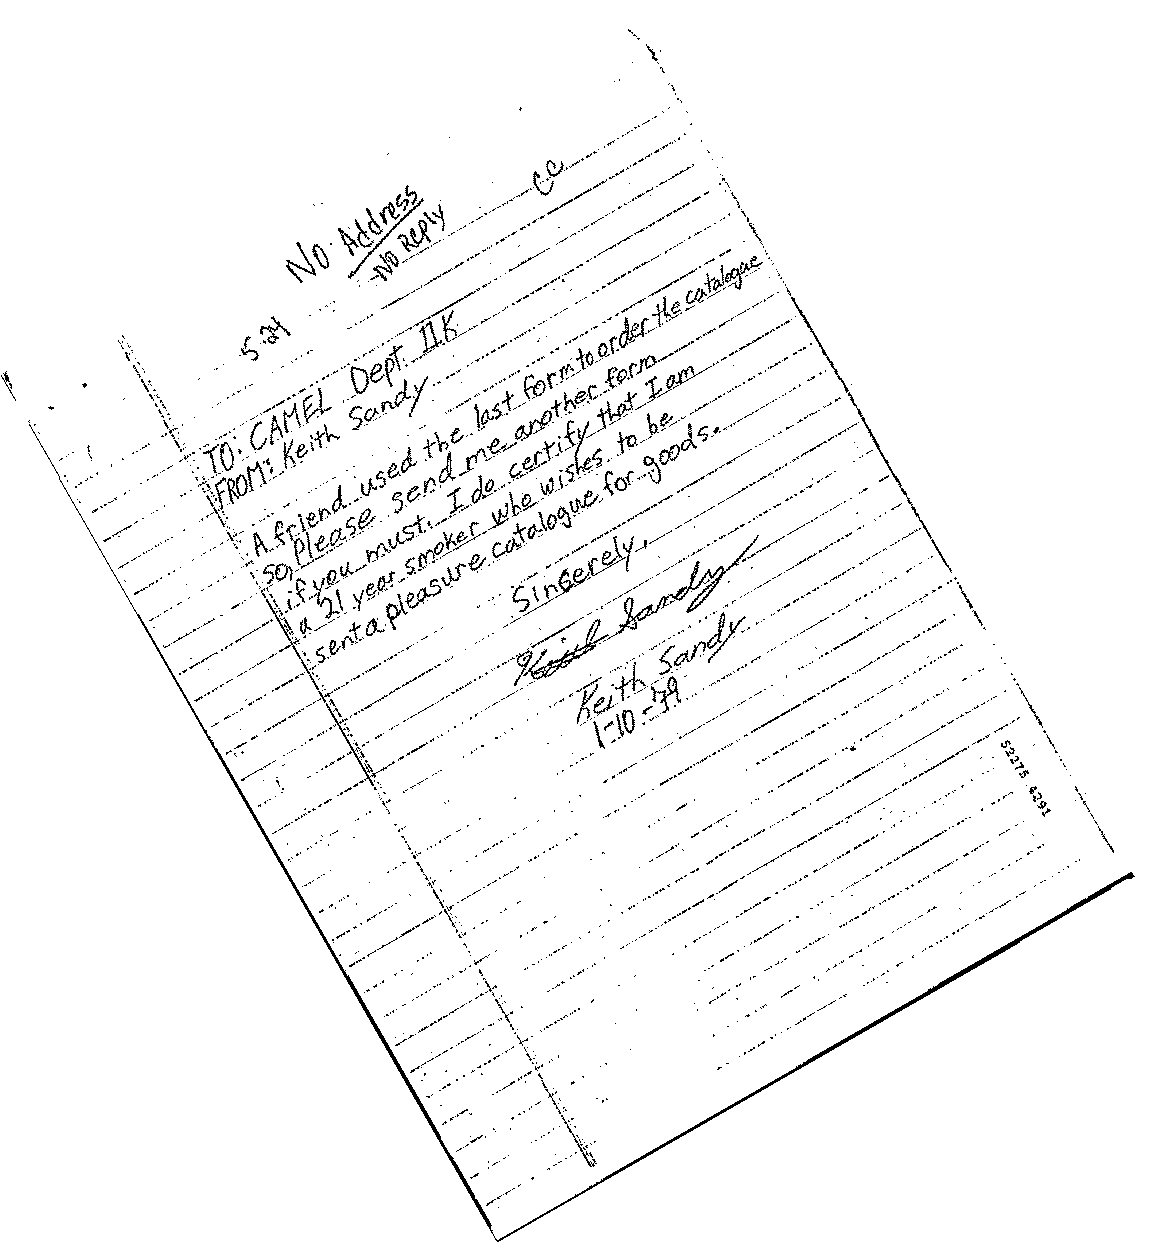 CC
No Address
No Reply
5-24
TO: CAMEL Dept. IIK
FROM: Keith Sandy
A friend used the last form to order the catalogue
so, please send me another form
if you must. I do certify that I am
a 21 year smoker who wishes to be
sent a pleasure catalogue for goods.
Sincerely,
Keith Sandy
Keith Sandy
1-10-79
52275 4291